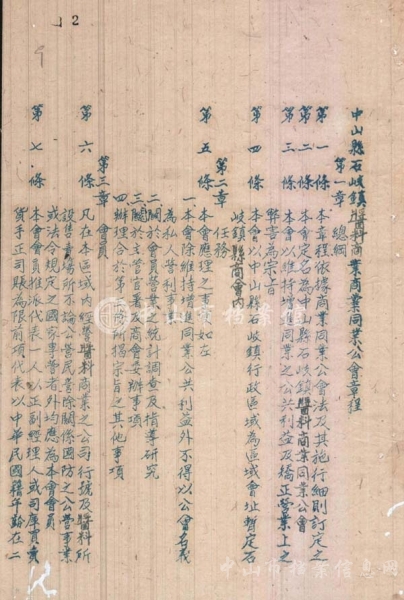 2
中山縣石岐鎮醬料商業商業同業公會章程
第一章 總綱
第一條 本章程依據商業同業公會法及其施行細則訂定之
第二條 本會定名為中山縣石岐鎮醬料商業同業公會
第三條 本會以維持增進同業之公共利益及矯正營業上之
弊害為宗旨
第四條 本會以中山縣石岐鎮行政區域為區域會址暫定石
岐鎮縣商會內
第二章 任務
第五條 本會應理之事如左
一、本會除維持增進同業公共利益外不得以公會名義
為私人營利事
二、關於會員營業之統計調查及指導研究
三、關於主管官署及商會委辦事項
四、辦理合於第三條所揭宗旨之其他事項
第三章 會員
第六條 凡在本區域內經營醬料商業之公司行號及醬料所
設售賣場所不論公營民營除關係國防之公營事業
或法令規定之國家專營者外均應為本會會員
第七條 本會會員推派代表一人以正副經理人或司庫買賣
貨手正司賬為限前項代表以中華民國籍年齡在二
中山市檔案館
中山市档案信息网